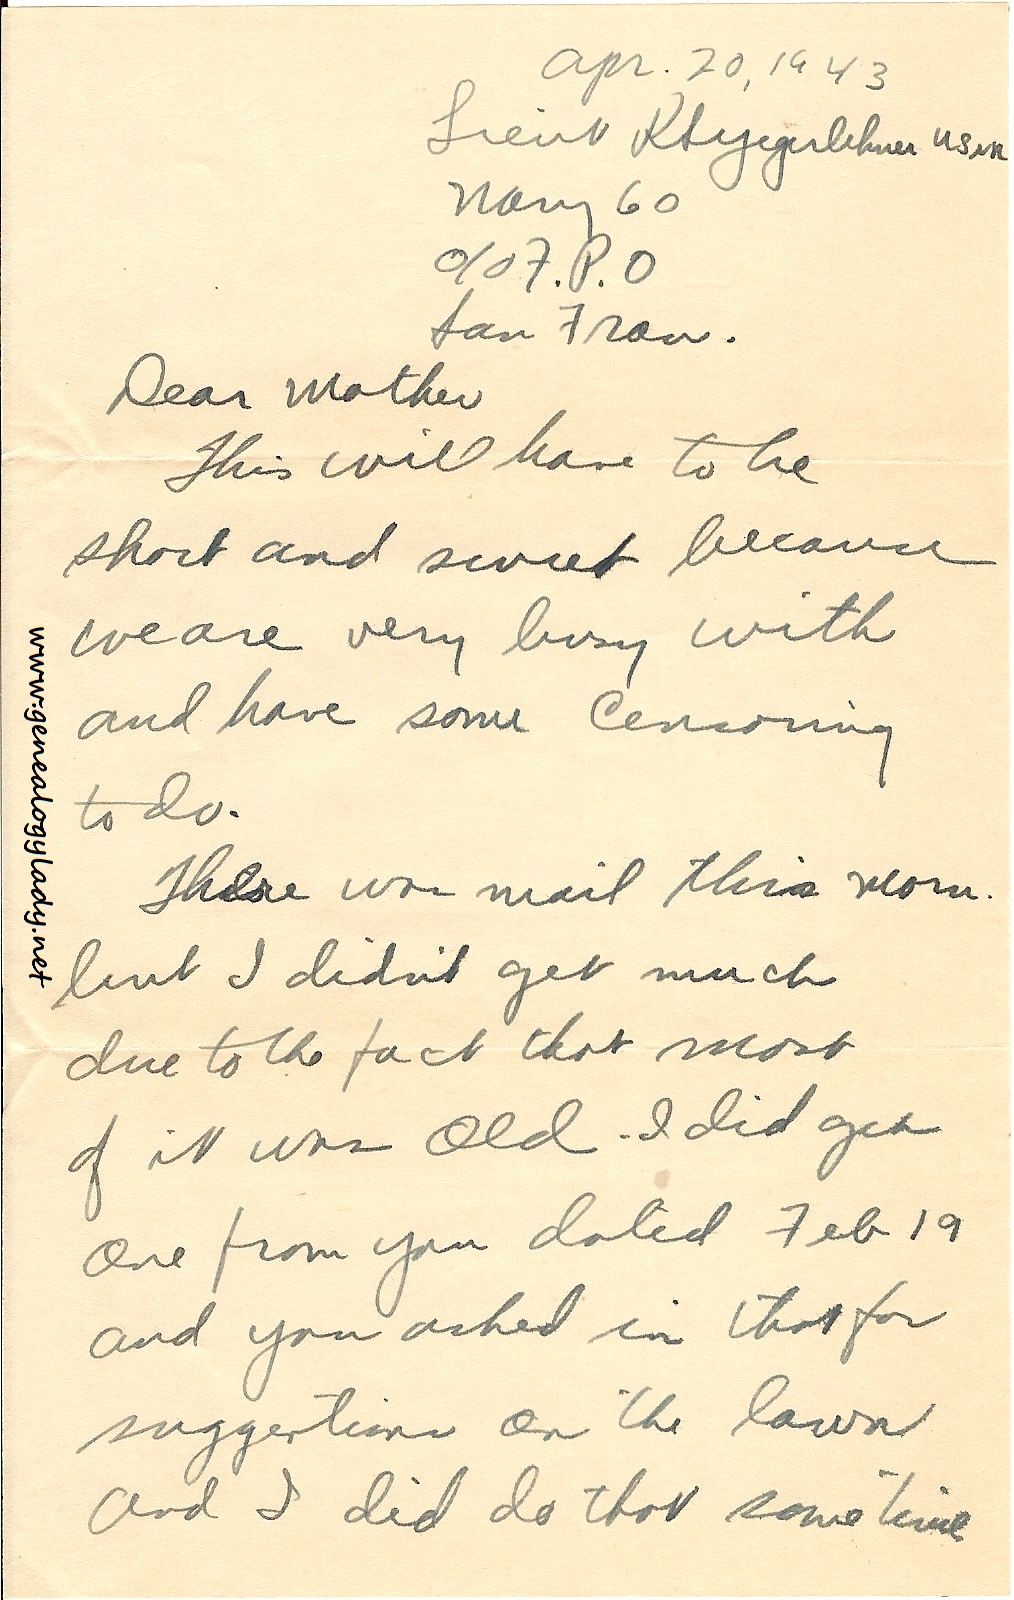 Apr. 20, 1943
Lieut R Yegerlehner USNR
Navy 60
c/o F.P.O
San Fran.
Dear Mother
This will have to be
short and sweet because
we are very busy with
and have some Censoring
to do.
There was mail this morn.
but I didn't get much
due to the fact that most
of it was old. I did get
one from you dated Feb 19
and you asked in that for
suggestions on the lawn
and I did do that sometime
www.genealogylady.net